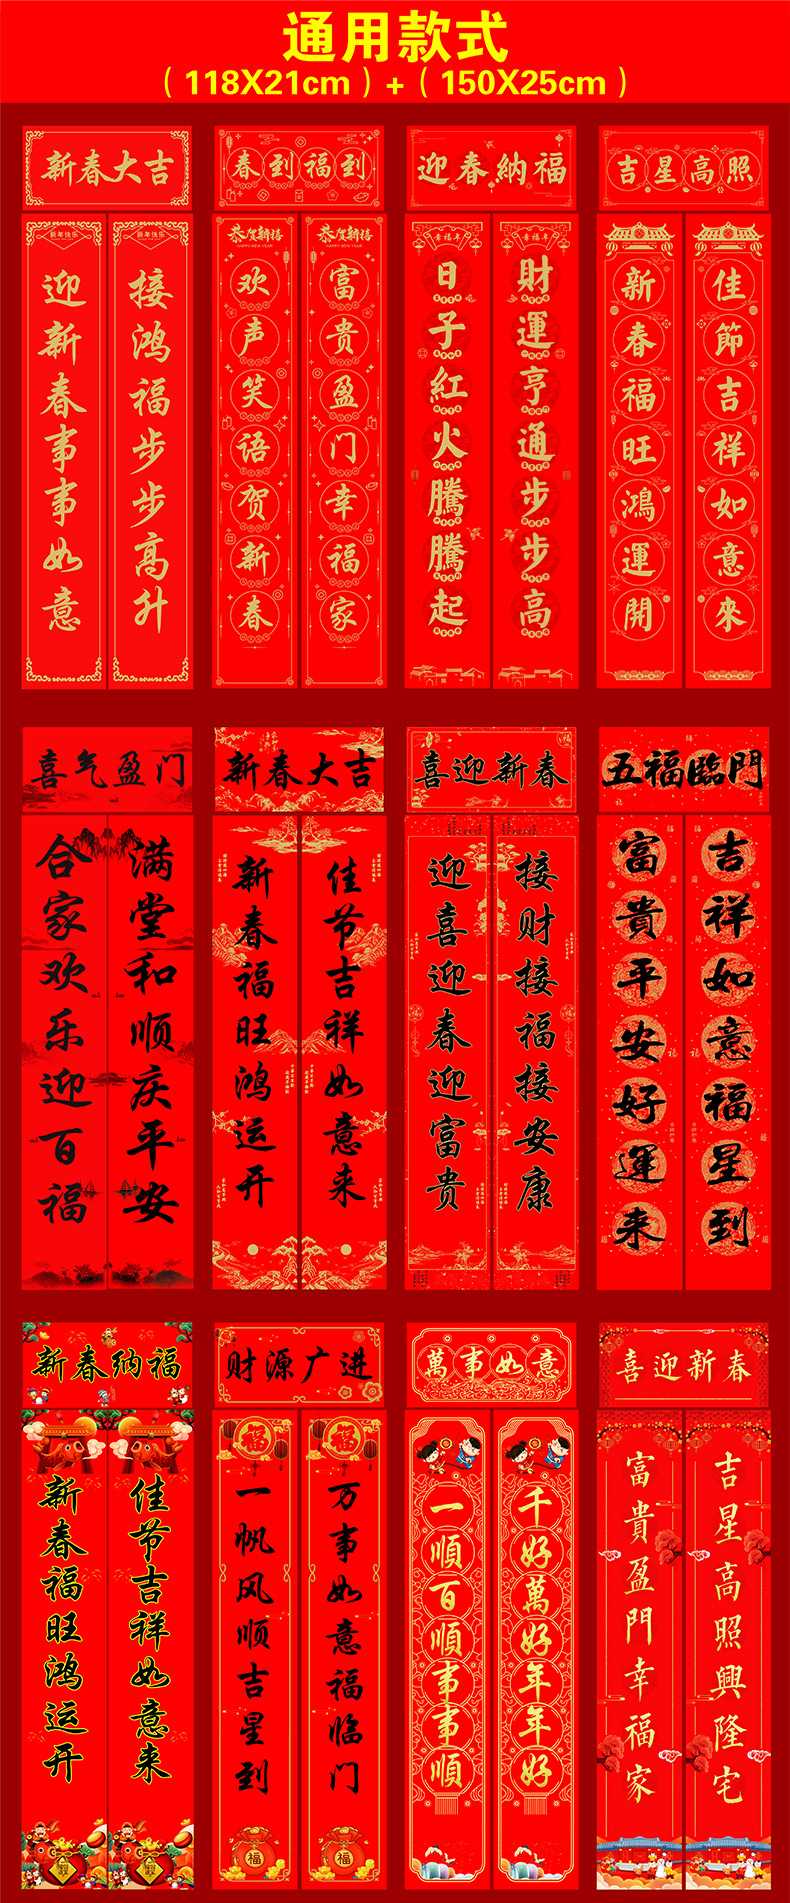 通用款式
（118X21cm）+（150X25cm）
新春大吉
新年快乐
迎新春事事如意
新年快乐
接鸿福步步高升
春到福到
恭贺新禧
HAPPY NEW YEAR
欢声笑语贺新春
恭贺新禧
HAPPY NEW YEAR
富贵盈门幸福家
迎春納福
幸福年
日子紅火騰騰起
幸福年
財運亨通步步高
吉星高照
新春福旺鴻運開
佳節吉祥如意來
喜气盈门
合家欢乐迎百福
满堂和顺庆平安
新春大吉
新春福旺鸿运开
佳节吉祥如意来
喜迎新春
迎喜迎春迎富贵
接财接福接安康
五福臨門
富貴平安好運来
吉祥如意福星到
新春纳福
新春福旺鸿运开
佳节吉祥如意来
财源广进
福
一帆风顺吉星到
福
福
万事如意福临门
福
萬事如意
一順百順事事順
千好萬好年年好
喜迎新春
富貴盈門幸福家
吉星高照興隆宅